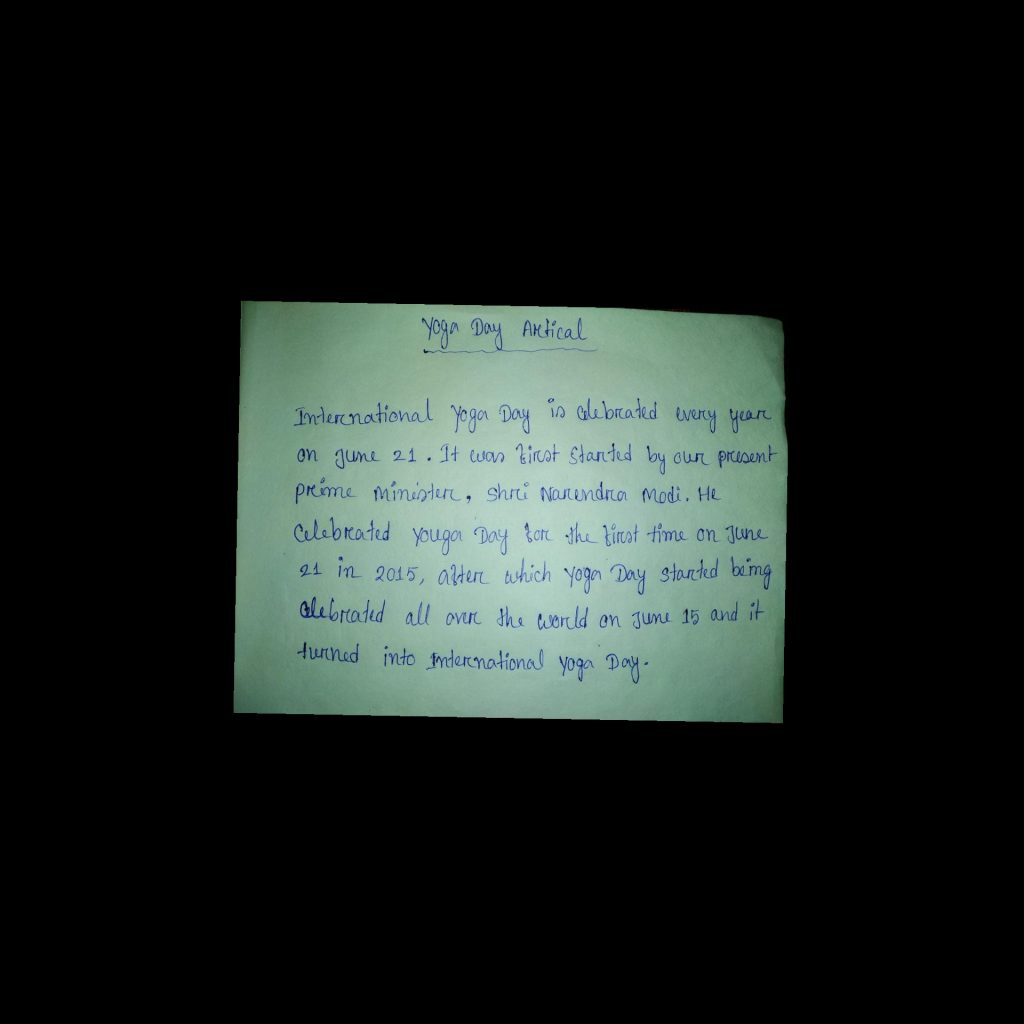 Yoga Day Artical
International Yoga Day is celebrated every year
on June 21. It was first started by our present
prime minister, Shri Narendra Modi. He
celebrated youga Day for the first time on June
21 in 2015, after which Yoga Day started being
celebrated all over the world on June 15 and it
turned into International Yoga Day.